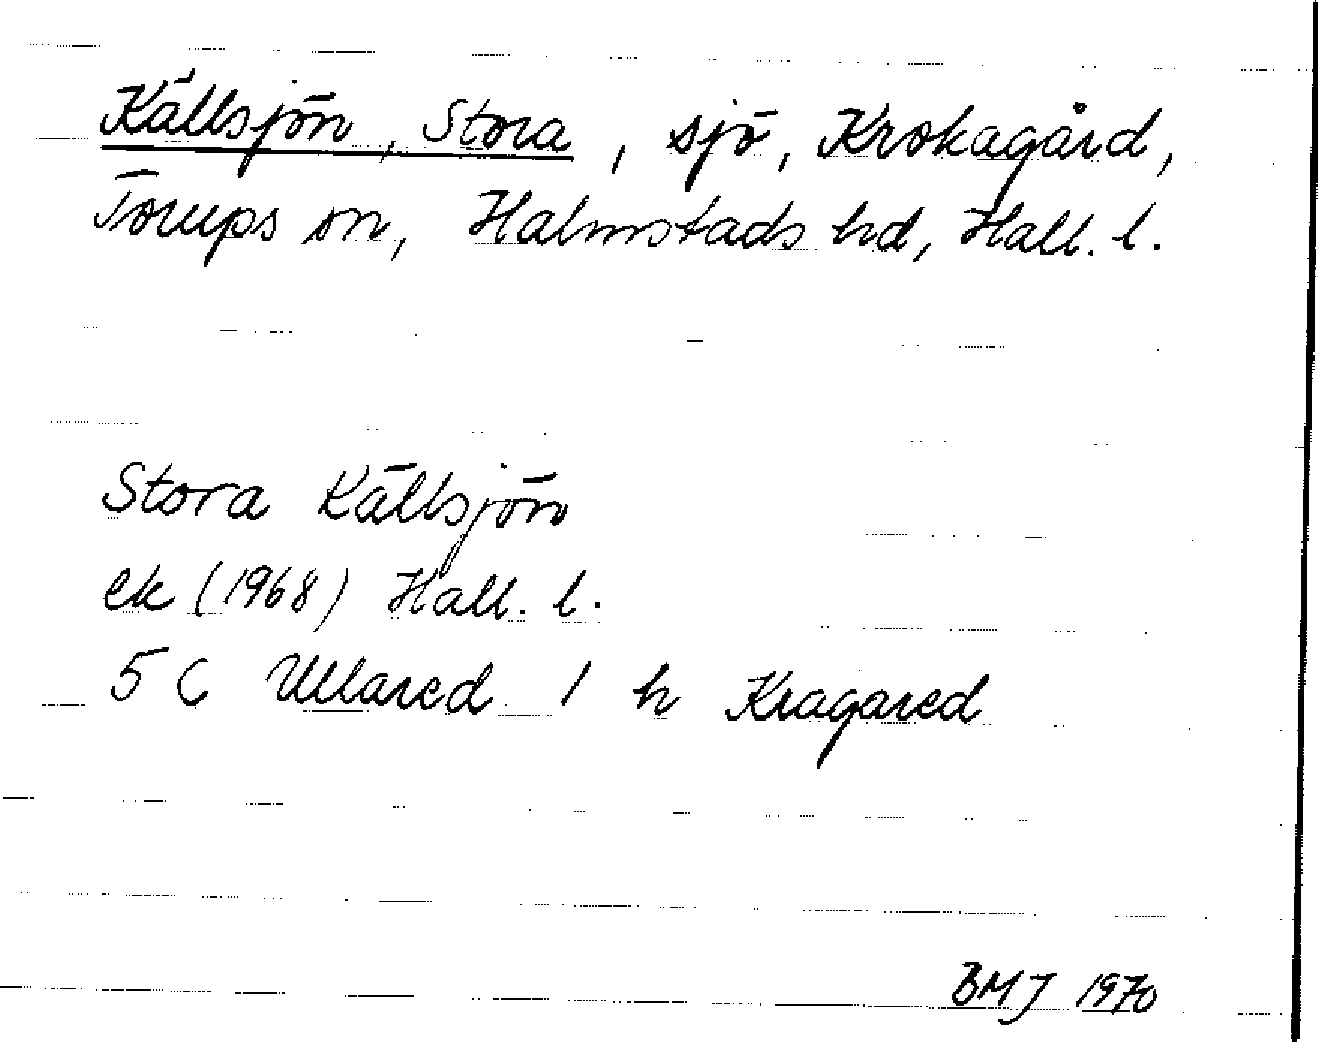 Källsjön, Stora, sjö, Krokagård,
Torups sn, Halmstads hd, Hall. l.
Stora Källsjön
ek (1968) Hall. l.
5 C Ullared 1 h Kragared
BMJ 1970